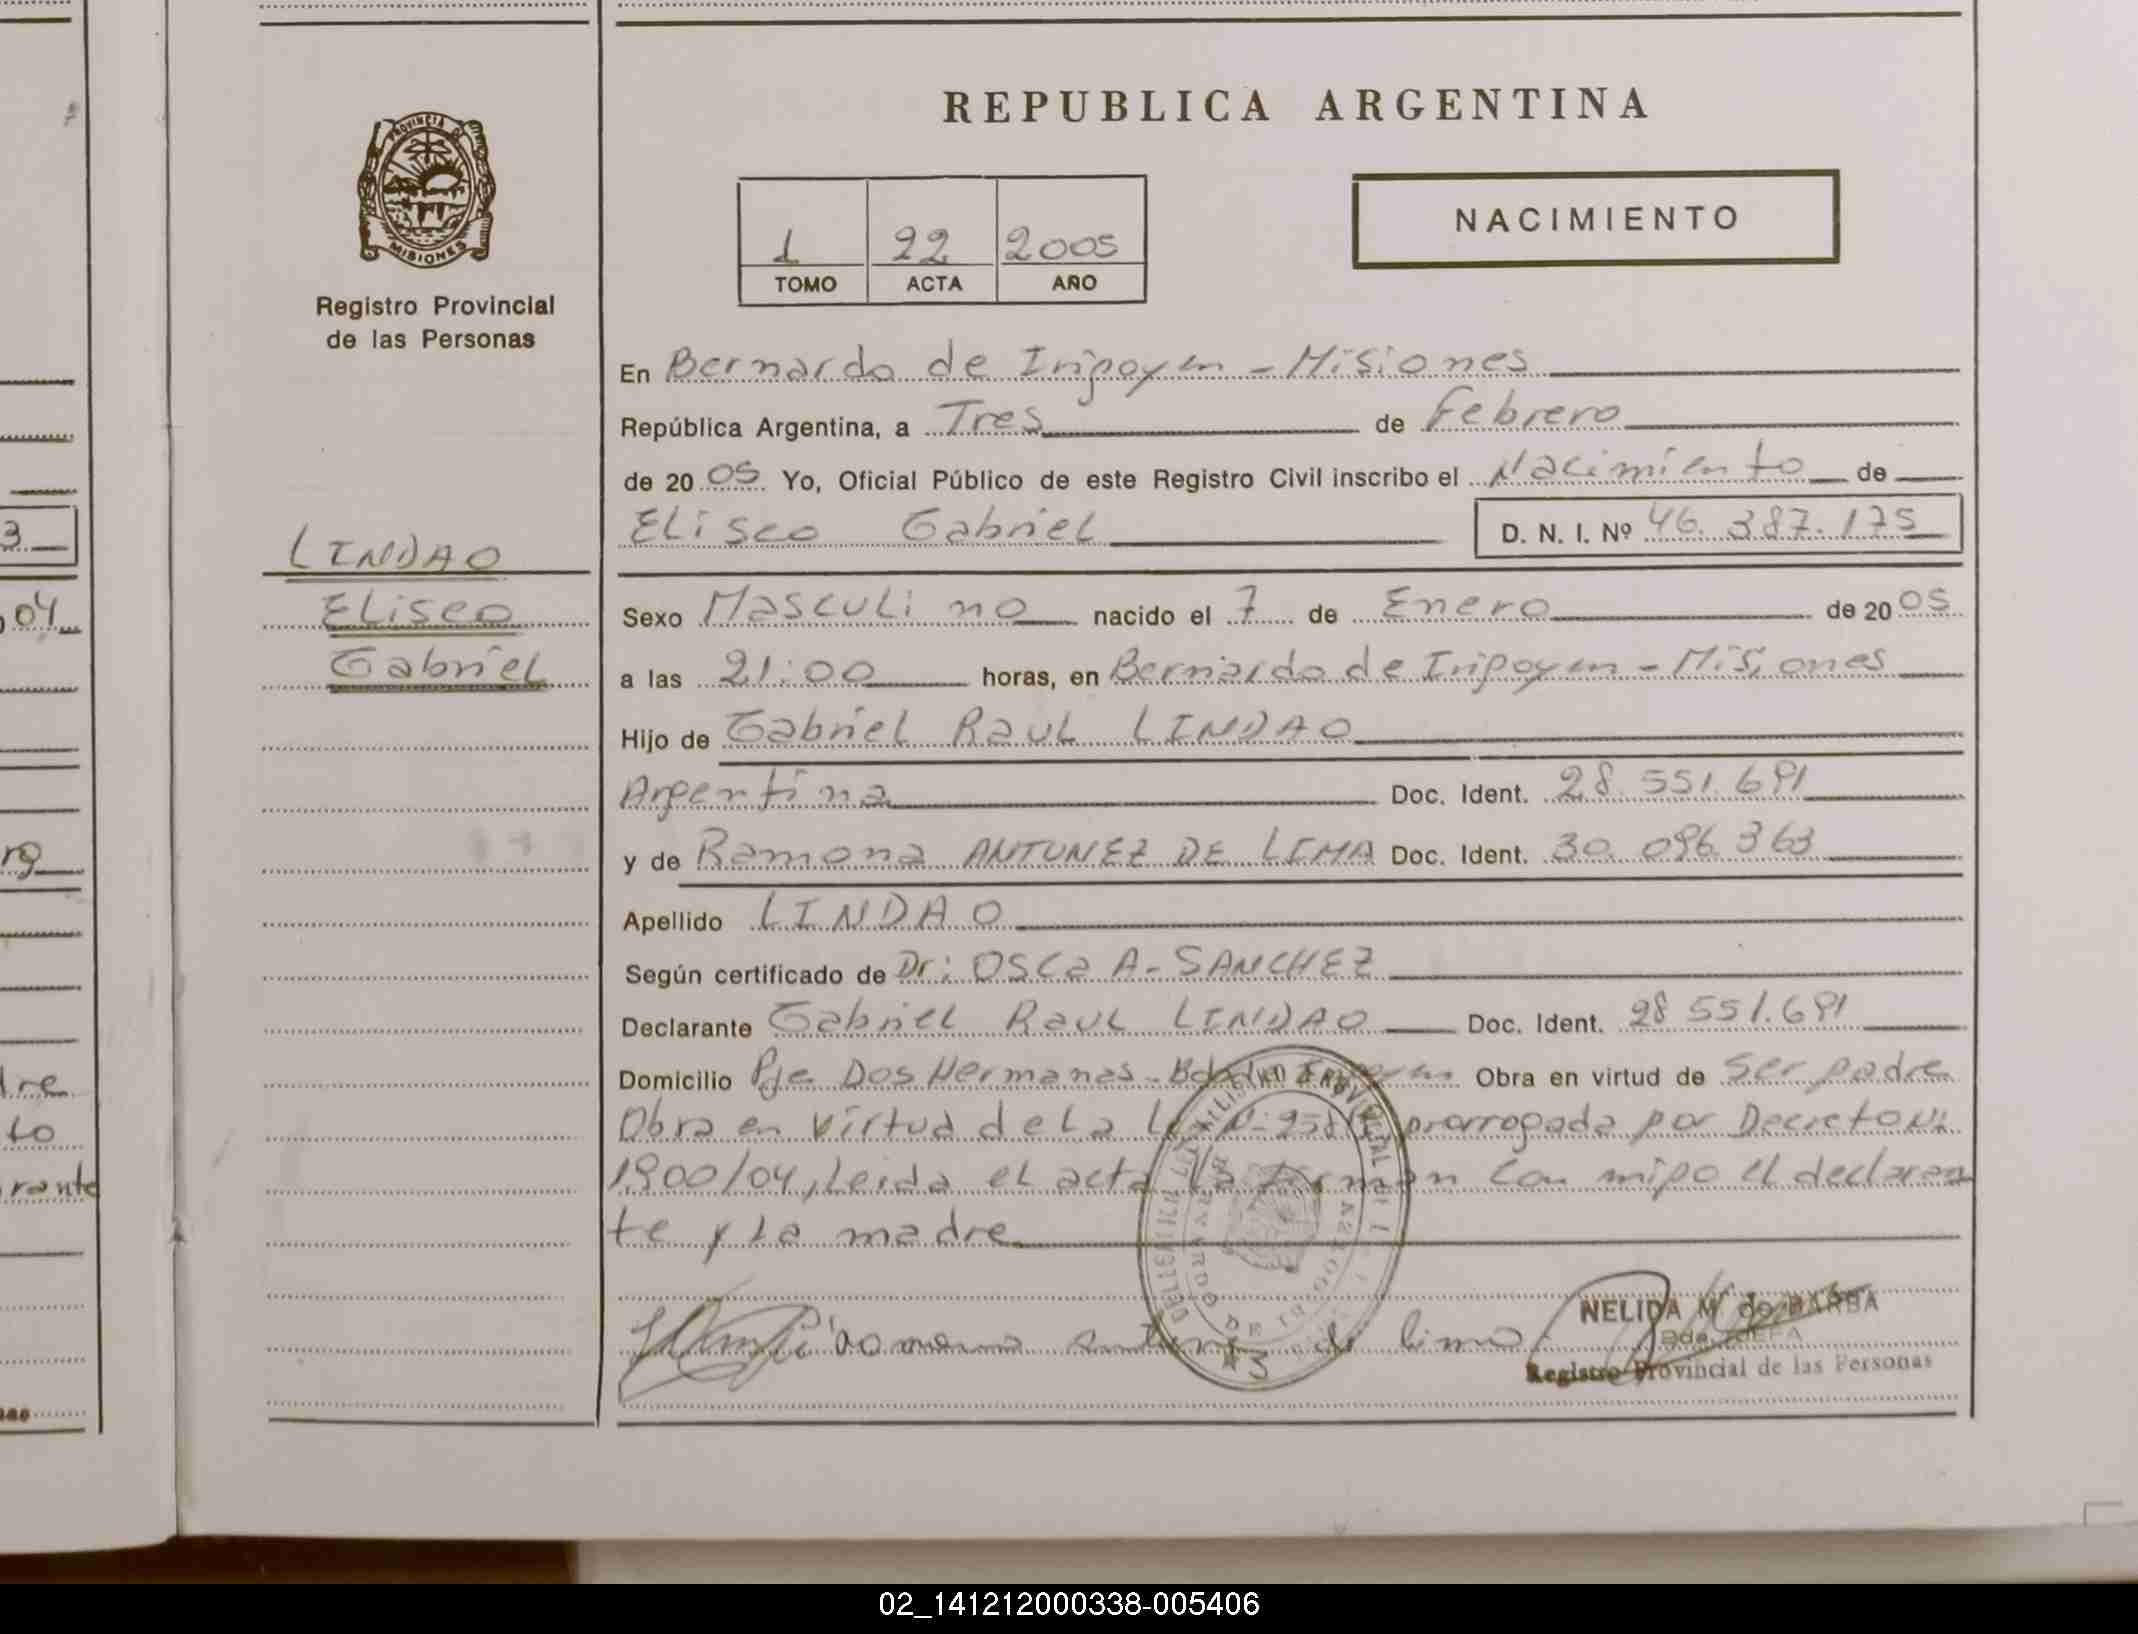 REPUBLICA ARGENTINA
PROVINCIA DE
MISIONES
Registro Provincial
de las Personas
1 22 2005
TOMO ACTA AÑO
NACIMIENTO
En Bernardo de Iripoyen - Misiones
República Argentina, a Tres de Febrero
de 20 05 Yo, Oficial Público de este Registro Civil inscribo el Nacimiento de
Eliseo Gabriel D. N. I. Nº 46.387.175
LINDAO
Eliseo
Gabriel
Sexo Masculino nacido el 7 de Enero de 20 05
a las 21:00 horas, en Bernardo de Iripoyen - Misiones
Hijo de Gabriel Raul LINDAO
Argentina Doc. Ident. 28.551.691
y de Ramona ANTUNEZ DE LIMA Doc. Ident. 30.096.363
Apellido LINDAO
Según certificado de Dr: OSCa A- SANCHEZ
Declarante Gabriel Raul LINDAO Doc. Ident. 28 551.691
Domicilio Pje Dos Hermanas- Obra en virtud de ser padre
Obra en virtud de La prorrogada por Decreto Nº
1900/04, Leida el acta la firman con mipo el declaran
te y La madre
de lima
NELIDA M. de BARBA
Registro Provincial de las Personas
3
04
dre
to
rante
02_141212000338-005406